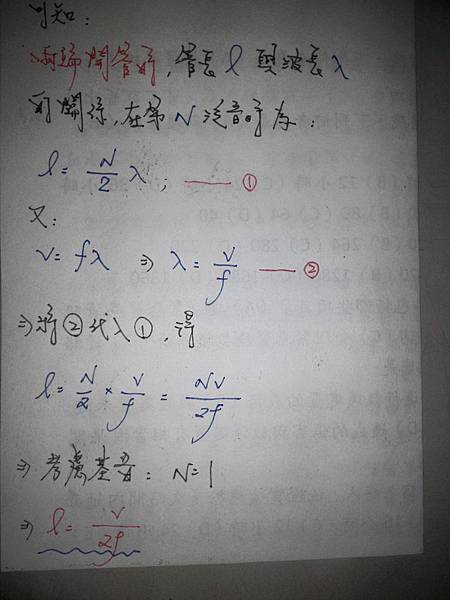 可知：
兩端開管時，管長 l 與波長 λ
的關係，在第 N 泛音時為：
l = N/2 λ； —— ①
又：
v = fλ ⇒ λ = v/f —— ②
⇒ 將②代入①，得
l = N/2 × v/f = Nv/2f
⇒ 考慮基音： N=1
⇒ l = v/2f